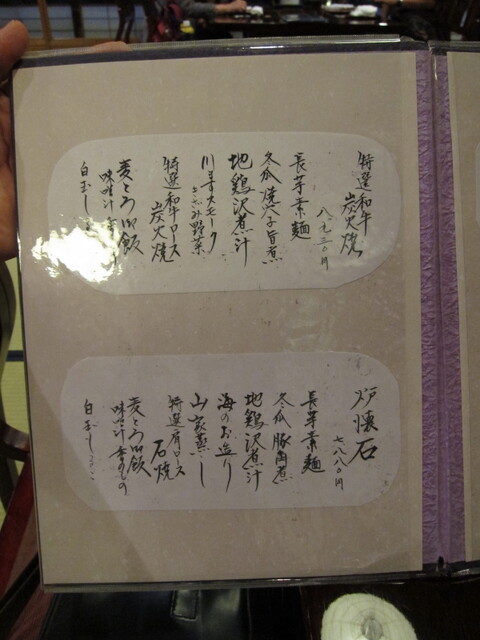 特選和牛
炭火焼
八、九三〇円
長芋素麺
冬瓜 焼穴子旨煮
地鶏沢煮汁
川ますスモーク
きざみ野菜
特選和牛ロース
炭火焼
麦とろ御飯
味噌汁 香の
白玉し
炉懐石
七、八八〇円
長芋素麺
冬瓜 豚角煮
地鶏沢煮汁
海のお造り
山家蒸し
特選肩ロース
石焼
麦とろ御飯
味噌汁 香のもの
白玉しるこ